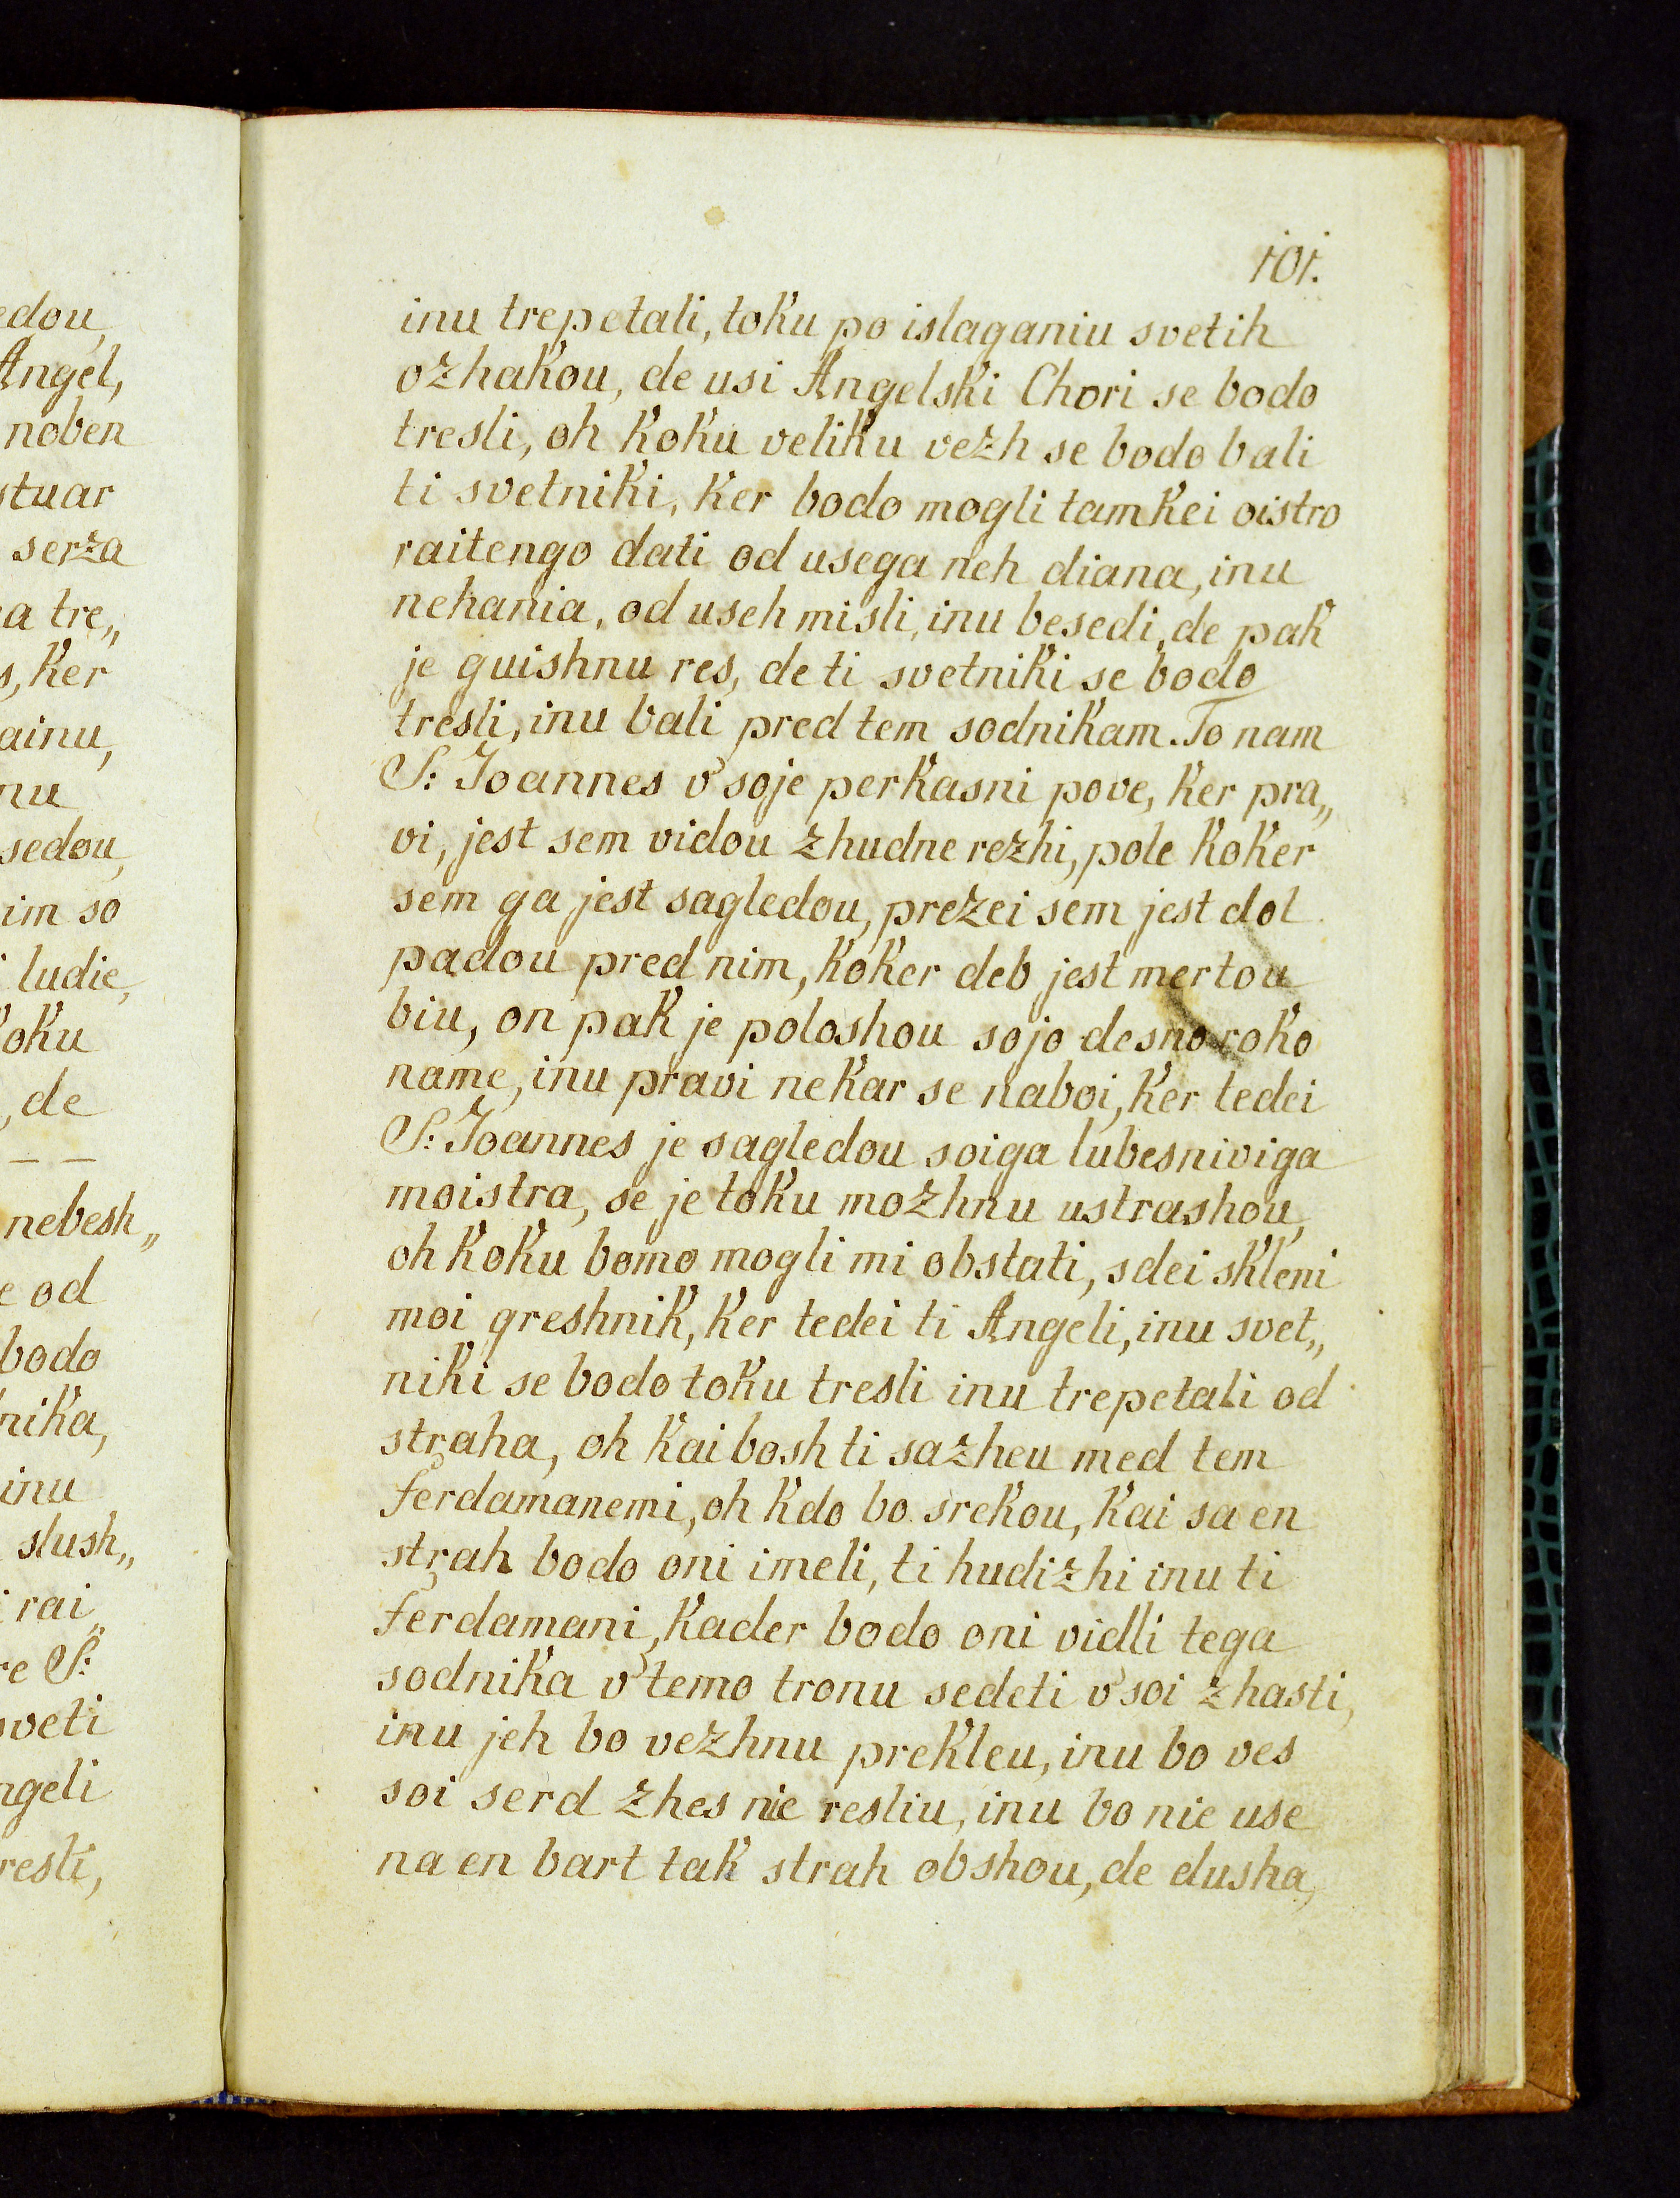 edou,
Angel,
noben
stuar
serza
a tre,,
s, ker
ainu,
nu
sedou,
im so
ludie,
koku
, de
— —
nebesh,,
e od
bodo
nika,
inu
slush,,
i rai,,
re S:
sveti
ngeli
resli,
101.
inu trepetali, toku po islaganiu svetih
ozhakou, de usi Angelski Chori se bodo
tresli, oh koku veliku vezh se bodo bali
ti svetniki, ker bodo mogli tamkei oistro
raitengo dati od usega neh diana, inu
nehania, od useh misli, inu besedi, de pak
je guishnu res, de ti svetniki se bodo
tresli, inu bali pred tem sodnikam. To nam
S: Joannes v'soje perkasni pove, ker pra,,
vi, jest sem vidou zhudne rezhi, pole koker
sem ga jest sagledou, prezei sem jest dol
padou pred nim, koker deb jest mertou
biu, on pak je poloshou sojo desno roko
name, inu pravi nekar se naboi, ker tedei
S: Joannes je sagledou soiga lubesniviga
moistra, se je toku mozhnu ustrashou,
oh koku bomo mogli mi obstati, sdei skleni
moi greshnik, ker tedei ti Angeli, inu svet,,
niki se bodo toku tresli inu trepetali od
straha, oh kai bosh ti sazheu med tem
ferdamanemi, oh kdo bo srekou, kai sa en
strah bodo oni imeli, ti hudizhi inu ti
ferdamani, kader bodo oni vidli tega
sodnika v'temo tronu sedeti v'soi zhasti,
inu jeh bo vezhnu prekleu, inu bo ves
soi serd zhes nie resliu, inu bo nie use
na en bart tak strah obshou, de dusha,